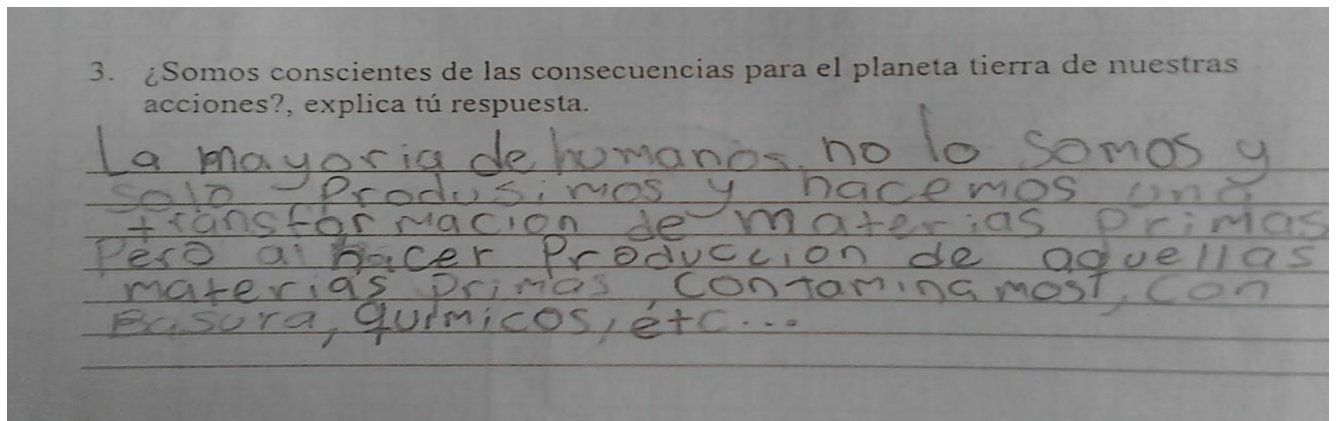 3. ¿Somos conscientes de las consecuencias para el planeta tierra de nuestras
acciones?, explica tú respuesta.
La mayoria de humanos, no lo somos y
solo Produsimos y hacemos una
transformacion de materias primas
Pero al hacer Produccion de aquellas
materias primas, contaminamos, con
Basura, quimicos, etc...